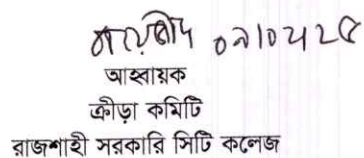 ০৯/০২/২৫
আহ্বায়ক
ক্রীড়া কমিটি
রাজশাহী সরকারি সিটি কলেজ